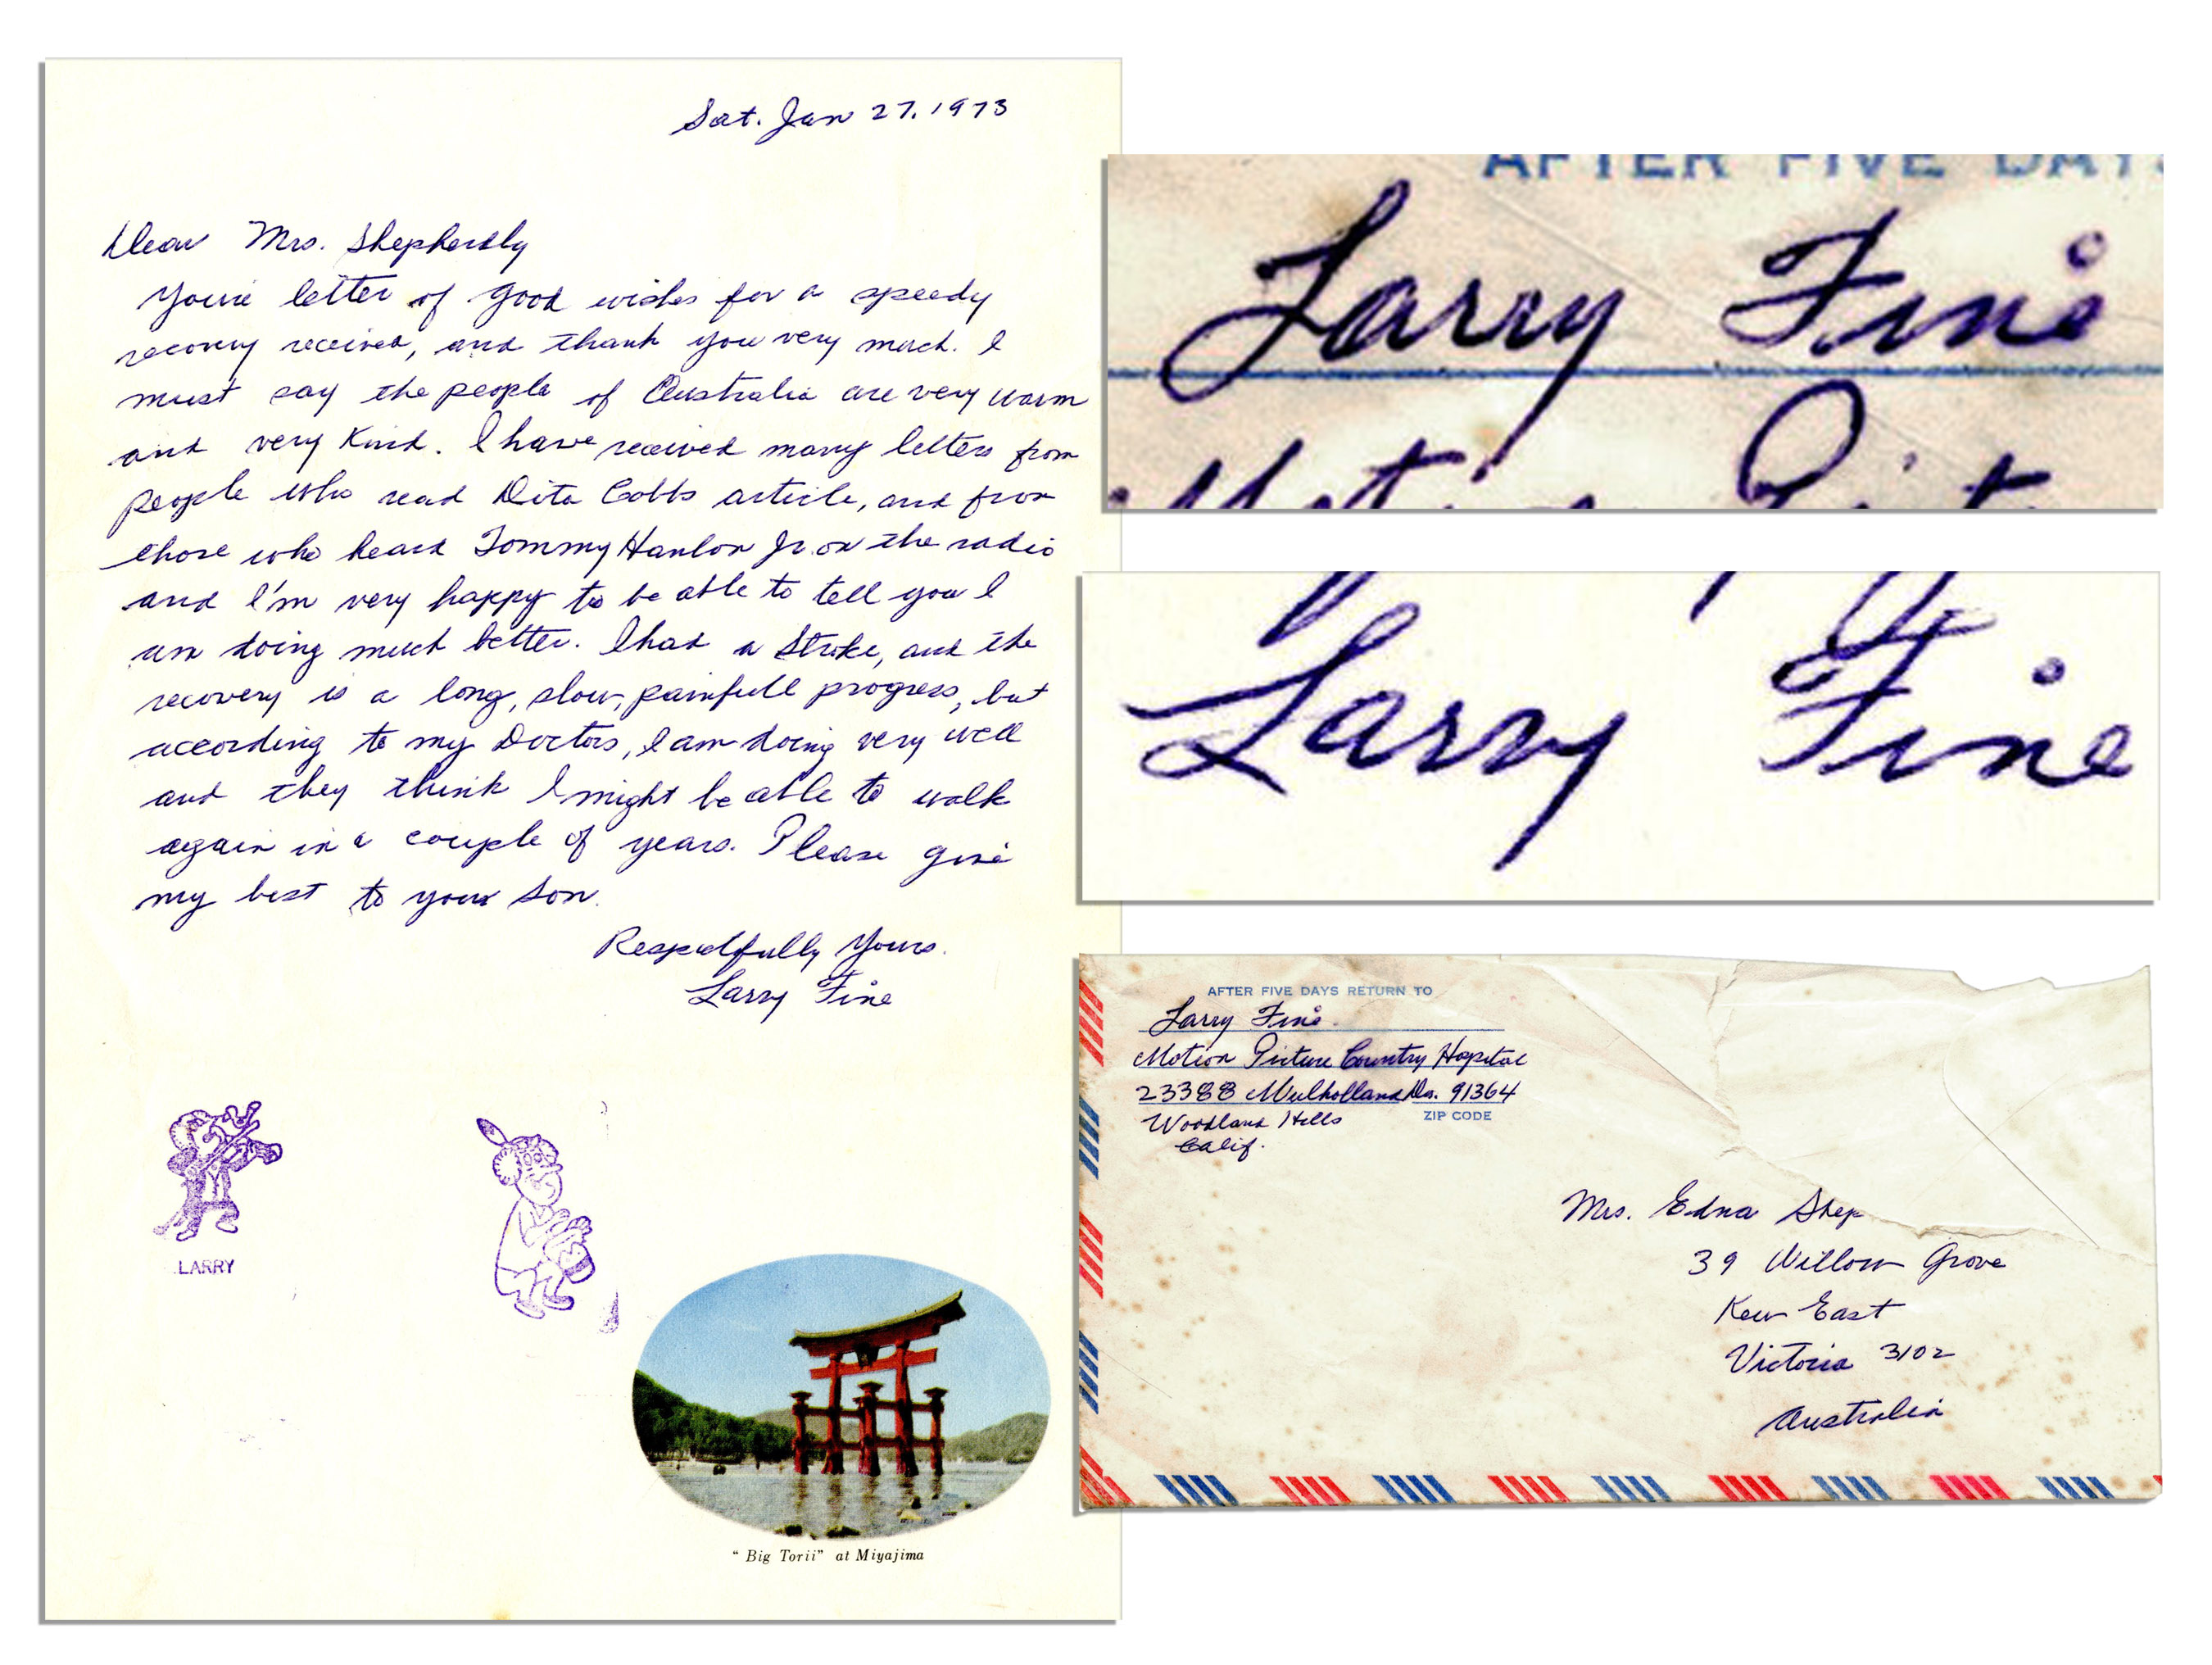 Sat. Jan 27. 1973
Dear Mrs. Shepherdly
Youre letter of good wishes for a speedy
recovery received, and thank you very much. I
must say the people of Australia are very warm
and very Kind. I have received many letters from
people who read Dita Cobbs article, and from
those who heard Tommy Hanlon Jr. on the radio
and I'm very happy to be able to tell you I
am doing much better. I had a Stroke, and the
recovery is a long, slow, painfull progress, but
according to my Doctors, I am doing very well
and they think I might be able to walk
again in a couple of years. Please give
my best to your Son.
Respectfully Yours.
Larry Fine
LARRY
"Big Torii" at Miyajima
AFTER FIVE DAYS
Larry Fine
Larry Fine
AFTER FIVE DAYS RETURN TO
Larry Fine.
Motion Picture Country Hospital
23388 Mulholland Dr. 91364
ZIP CODE
Woodland Hills
Calif.
Mrs. Edna Shep
39 Willow Grove
Kew East
Victoria 3102
Australia